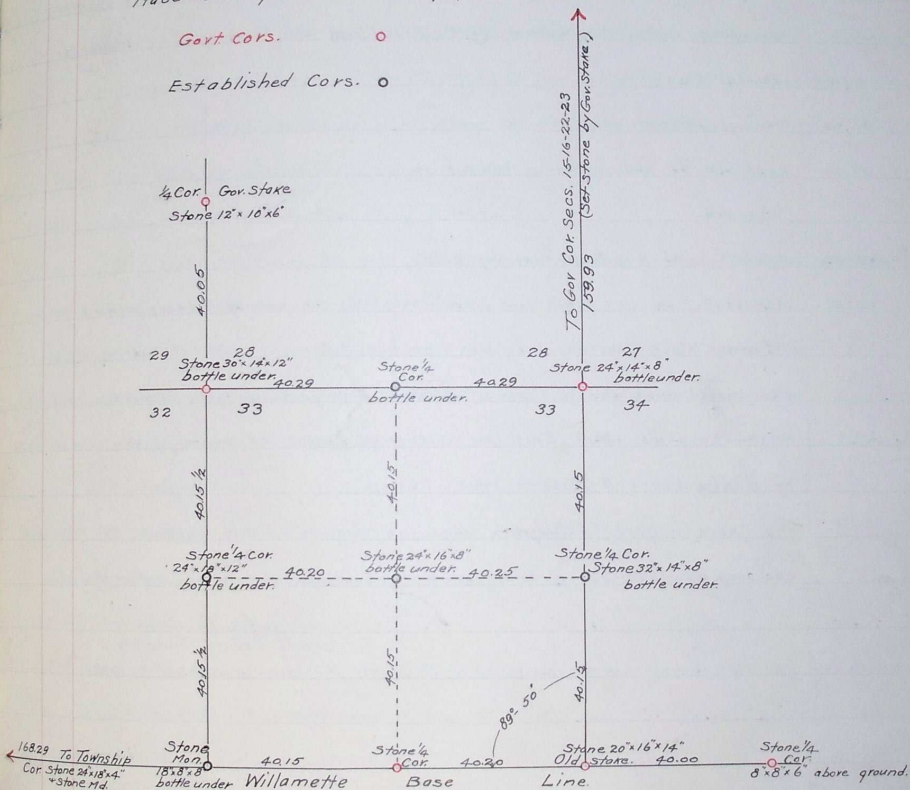 Govt Cors.
Established Cors.
To Gov Cor. Secs. 15-16-22-23
(Set stone by Gov. Stake.)
159.93
1/4 Cor. Gov. Stake
Stone 12"x10"x6"
40.05
29 28 28 27
Stone 30"x14"x12"
bottle under.
40.29
Stone 1/4
Cor.
bottle under.
40.29
Stone 24"x14"x8"
bottle under.
32 33 33 34
40.15 1/2
40.15
40.15
Stone 1/4 Cor.
24"x18"x12"
bottle under.
40.20
Stone 24"x16"x8"
bottle under.
40.25
Stone 1/4 Cor.
Stone 32"x14"x8"
bottle under.
40.15 1/2
40.15
40.15
89°-50'
168.29 To Township
Cor. Stone 24"x18"x4"
Stone Md.
Stone
Mon.
18"x8"x8"
bottle under
40.15
Stone 1/4
Cor.
40.20
Stone 20"x16"x14"
Old stake.
40.00
Stone 1/4
Cor.
8"x8"x6" above ground.
Willamette Base Line.